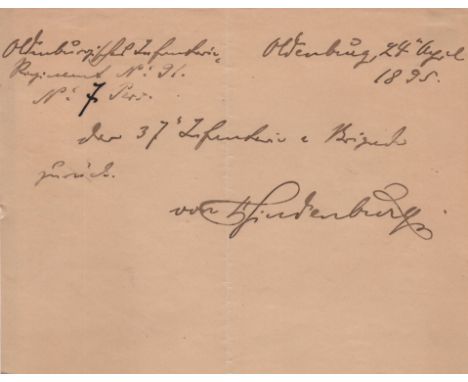 Oldenburgisches Infanterie-
Regiment No. 91.
No. 7 Pers.
Oldenburg, 24t April
1895.
der 37t Infanterie-Brigade
zurück.
von Hindenburg.